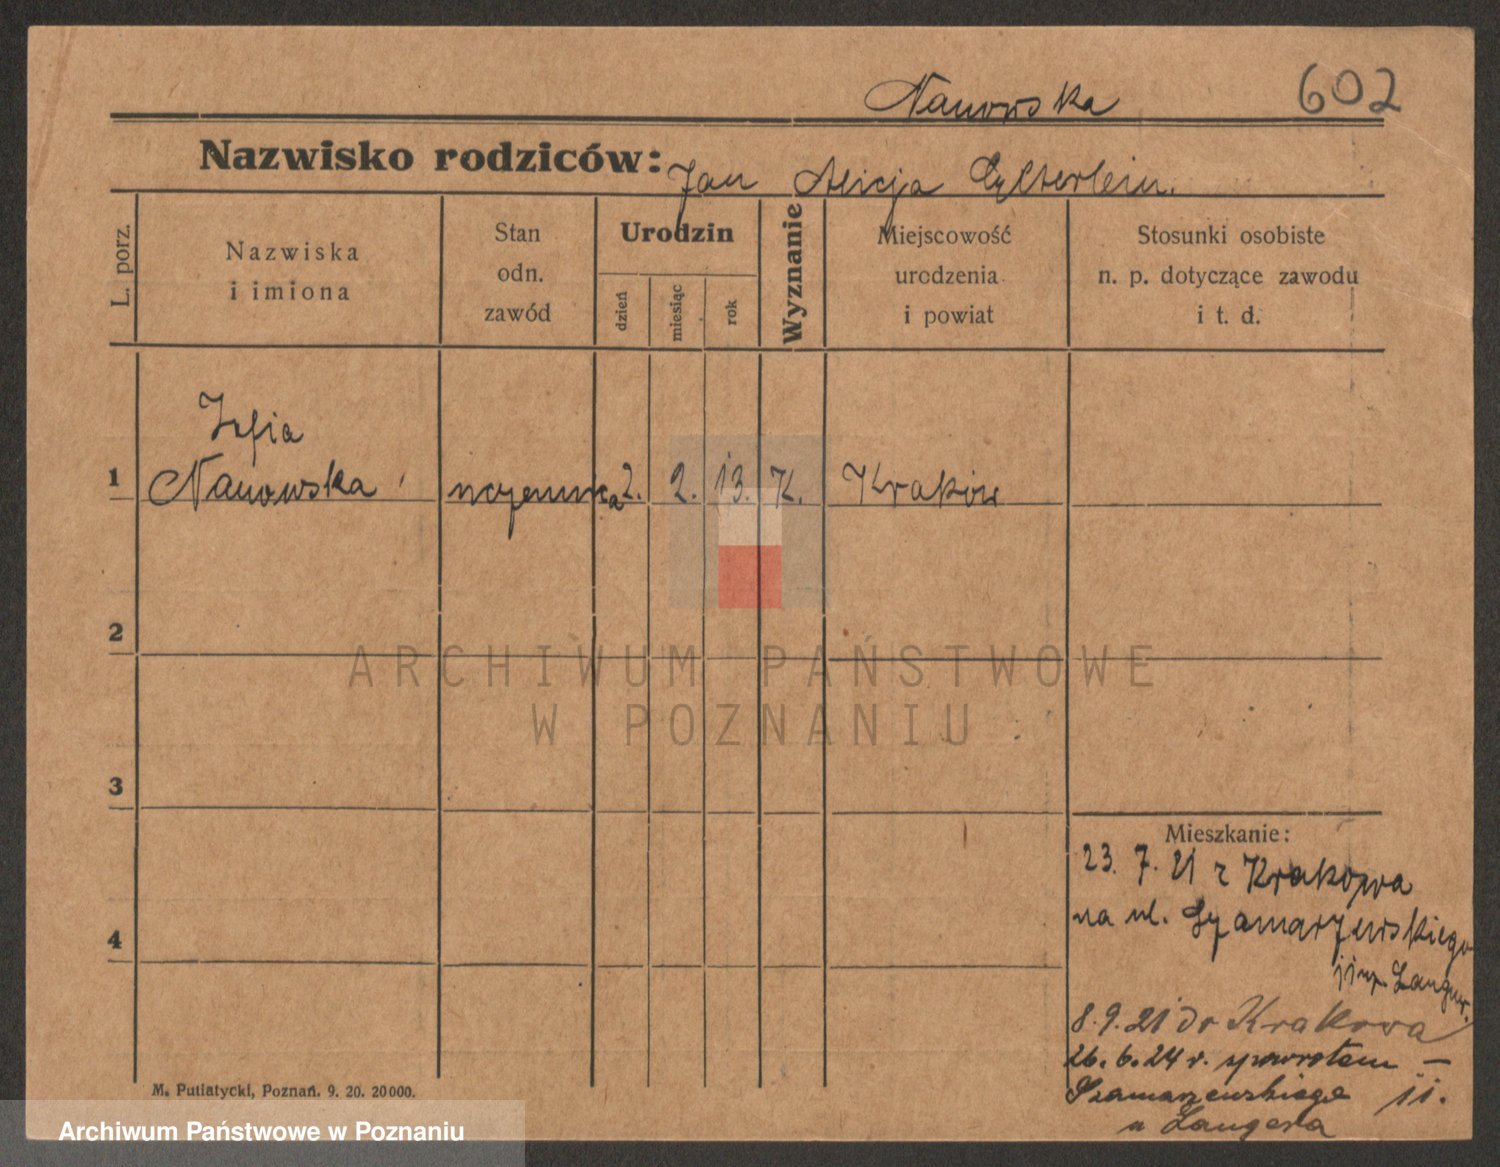 Nanowska 602
Nazwisko rodziców: Jan Alicja
L. porz.
Nazwiska
i imiona
Stan
odn.
zawód
Urodzin
dzień
miesiąc
rok
Wyznanie
Miejscowość
urodzenia
i powiat
Stosunki osobiste
n. p. dotyczące zawodu
i t. d.
Zofia
1 Nanowska 2. 2. 13. K. Kraków
2
3
4
Mieszkanie:
23. 7. 21 z Krakowa
na ul. Szamarzewskiego
11 Langer.
8. 9. 21 do Krakowa
26. 6. 24 r. spowrotem –
Szamarzewskiego 11.
u Langera
M. Putiatycki, Poznań. 9. 20. 20000.
ARCHIWUM PAŃSTWOWE
W POZNANIU
Archiwum Państwowe w Poznaniu